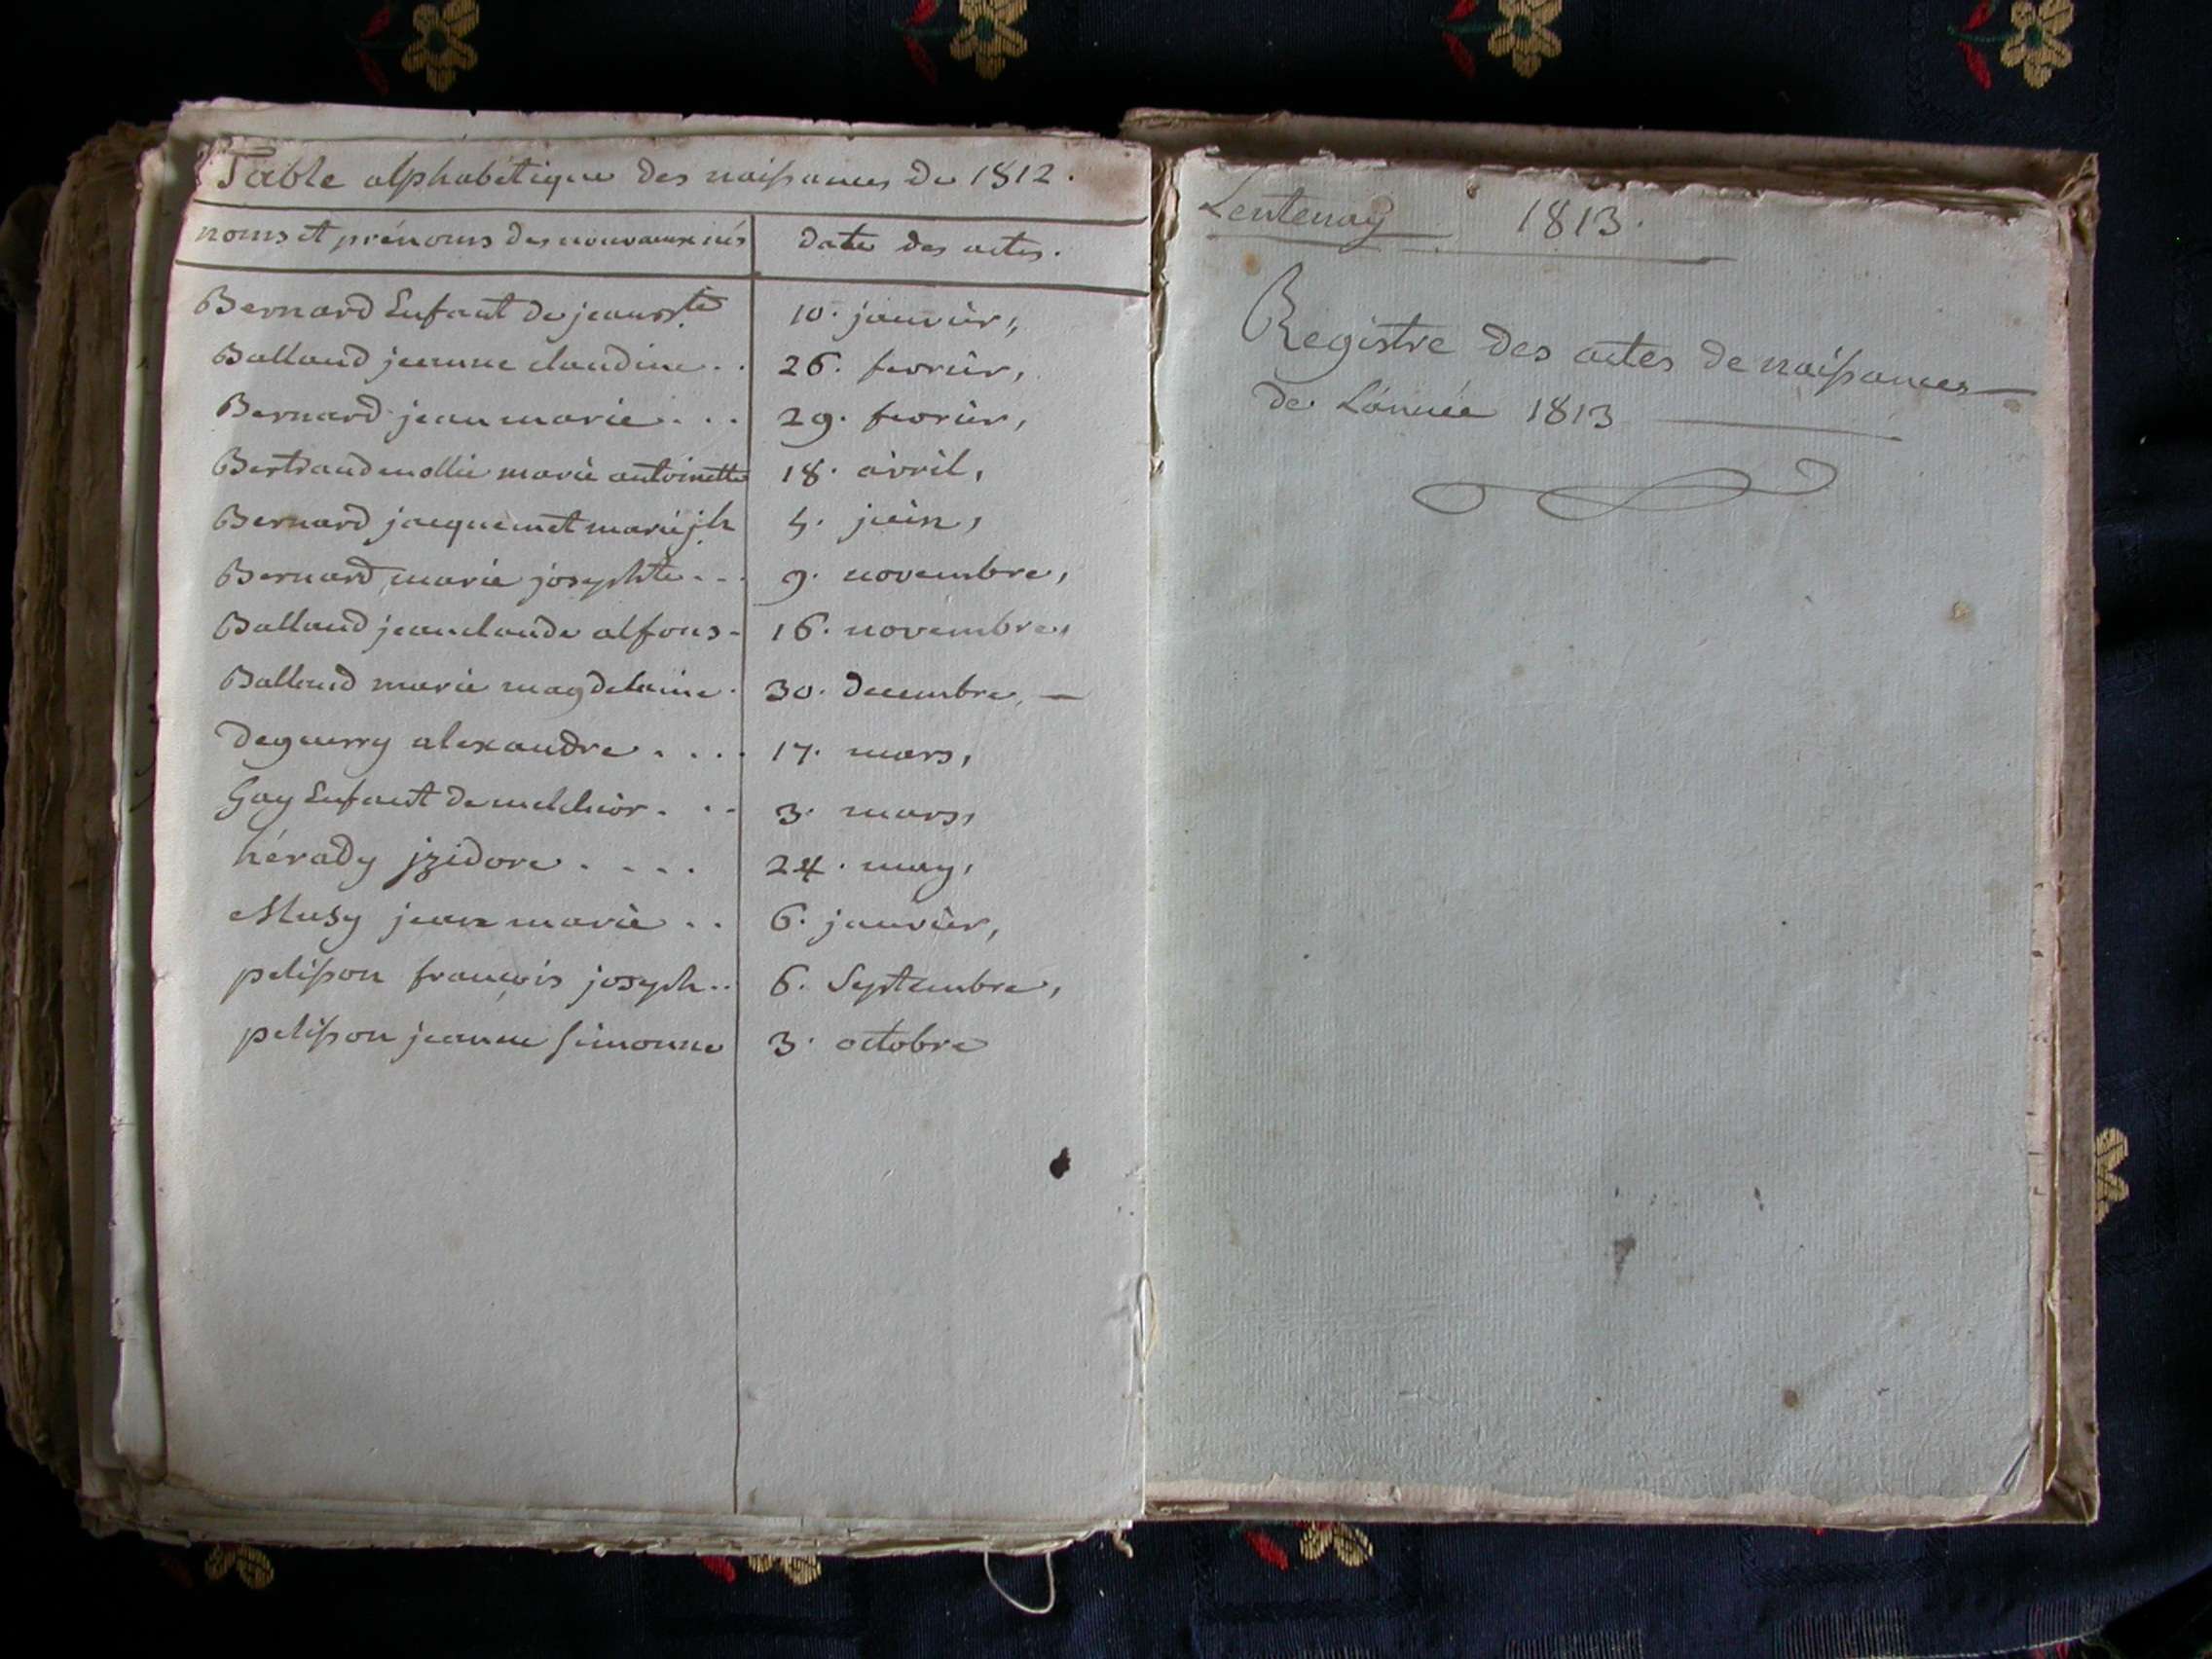 Table alphabétique des naissances de 1812.
noms et prénoms des nouveaux nés date des actes.
Bernard Enfant de jean 10. janvier,
Balland jeanne claudine.. 26. fevrier,
Bernard jean marie... 29. fevrier,
Bertrand mollie marie antoinette 18. avril,
Bernard jacquemet marie jh juin,
Bernard marie josephte... 9. novembre,
Balland jean claude alfons- 16. novembre,
Balland marie magdelaine. 30. decembre, —
deguerry alexandre.... 17. mars,
Gay Enfant de melchior... 3. mars,
hérady jzidore.... 24. may,
Musy jean marie.. 6. janvier,
pelisson françois joseph.. 6. Septembre,
pelisson jeanne Simonne 3. octobre
Lentenay 1813.
Registre des actes de naissances
de L'année 1813